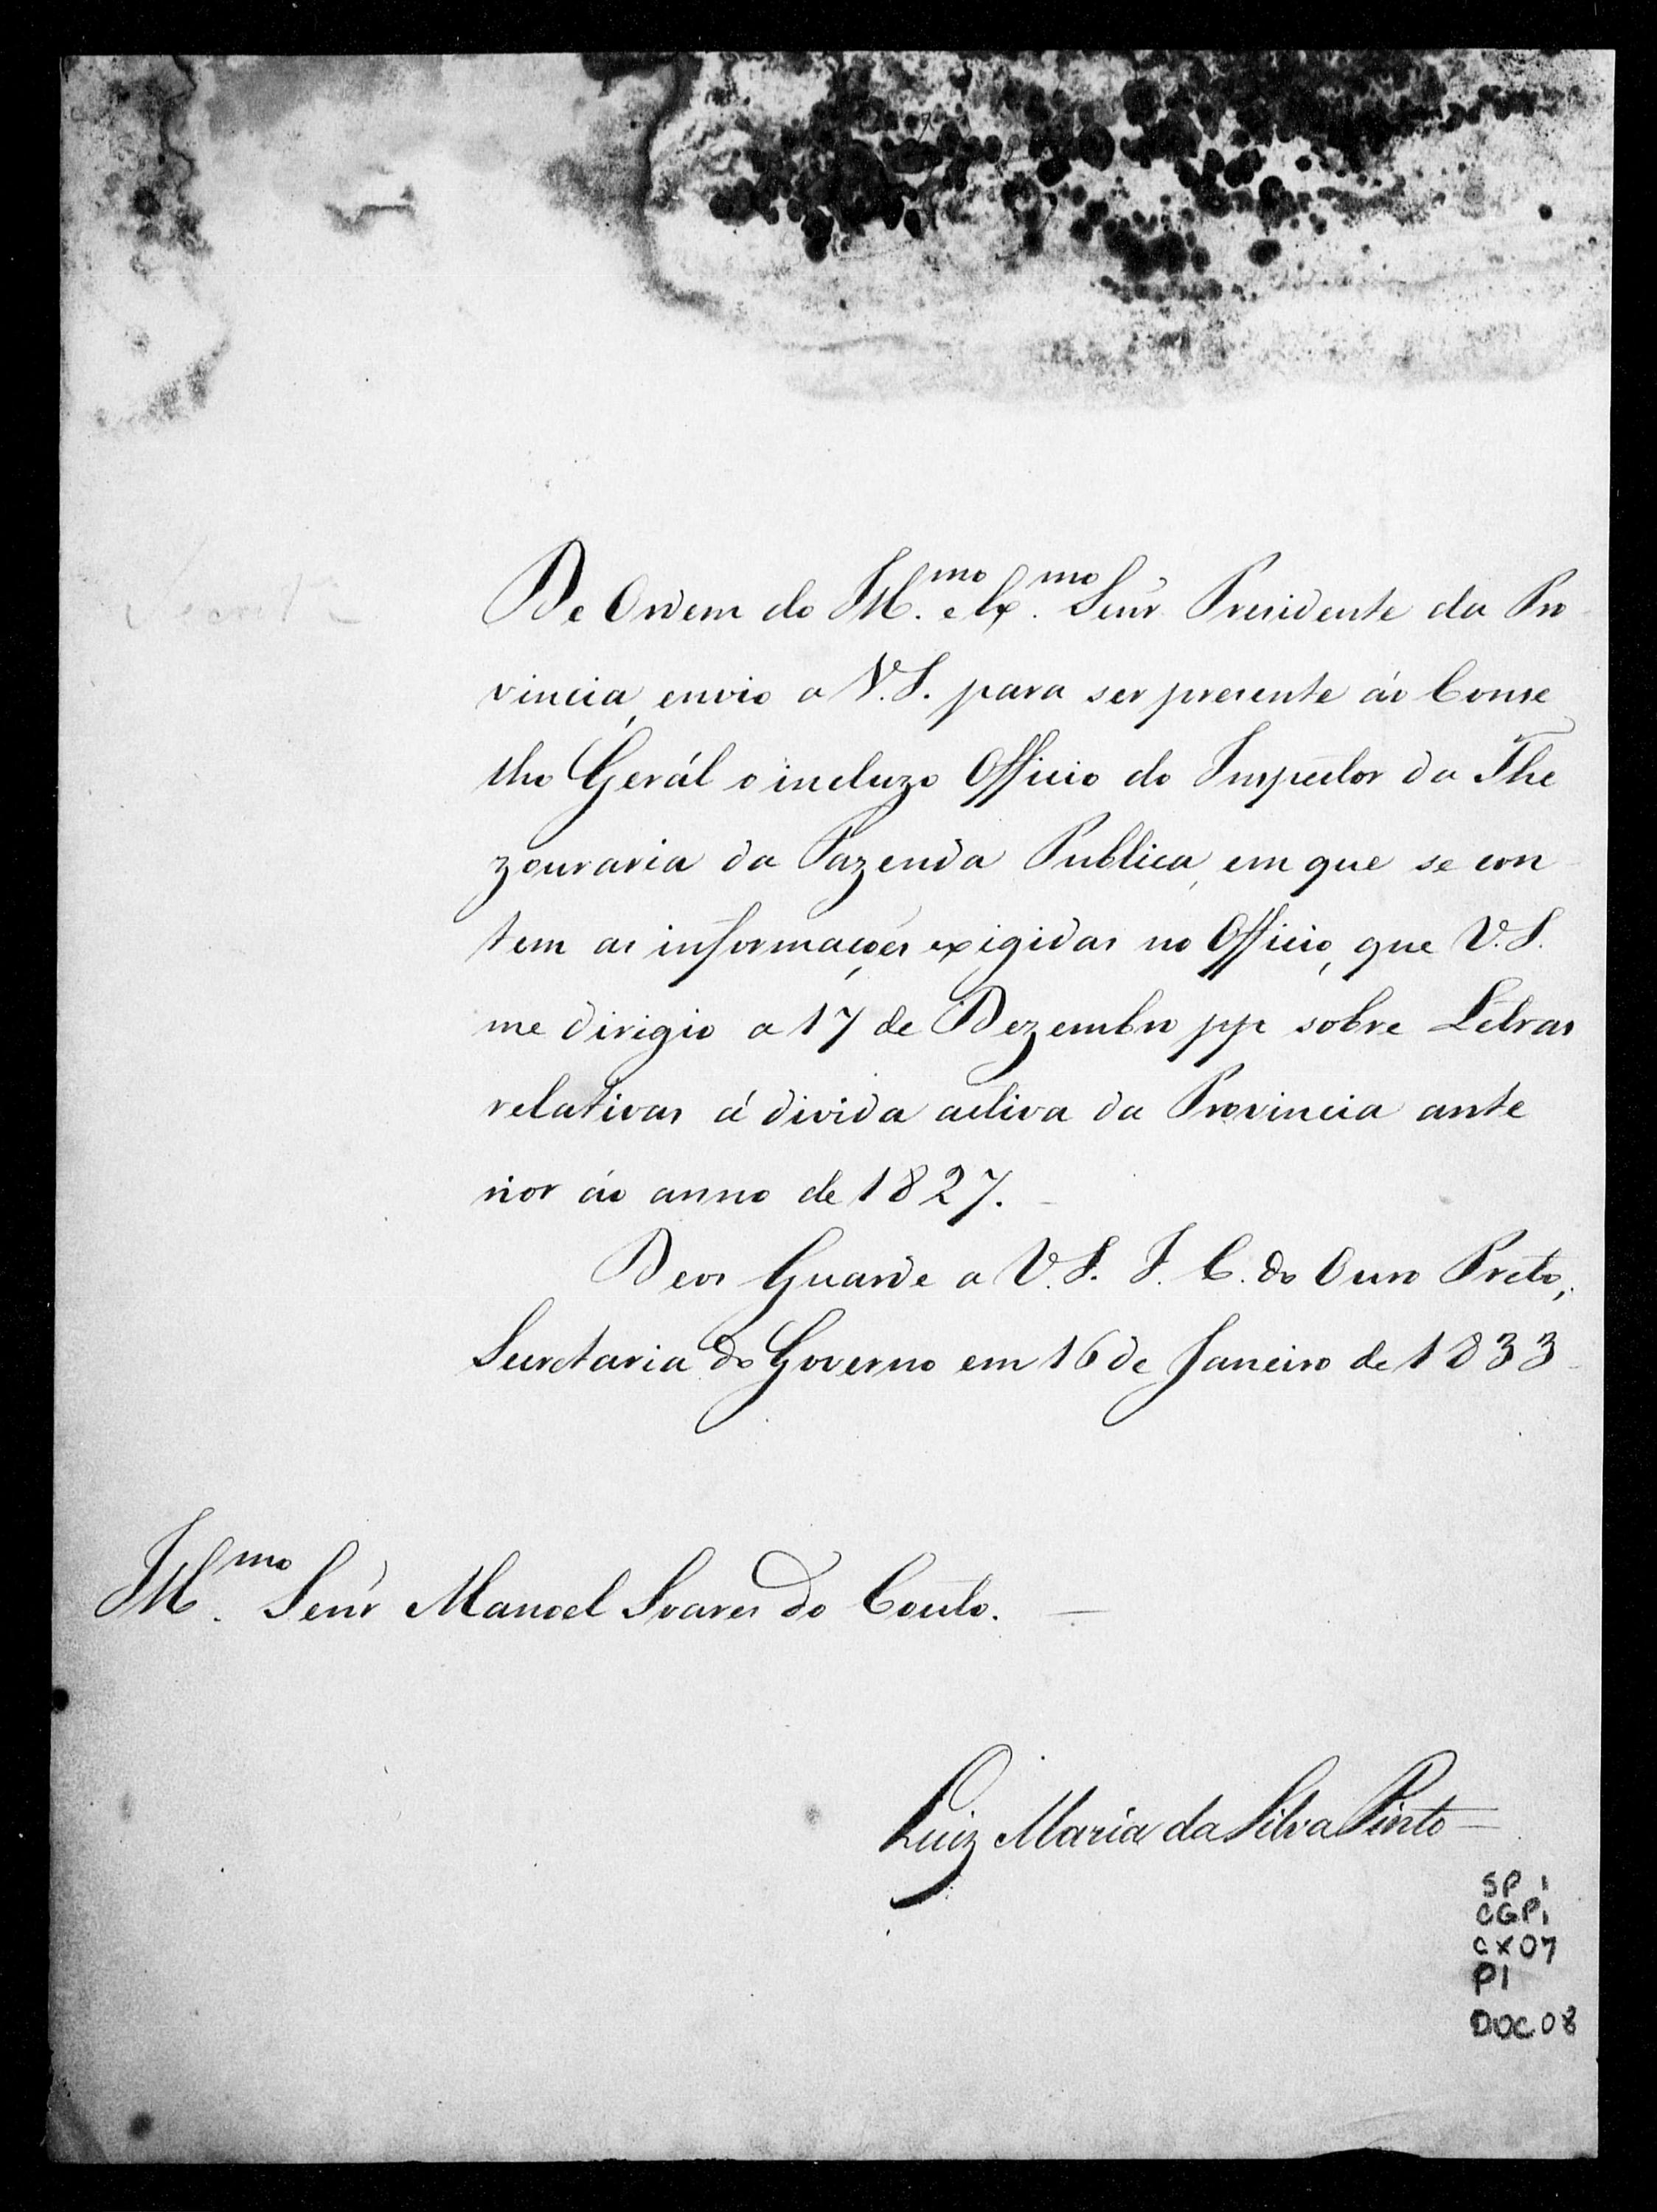 De Ordem do Ill.mo e Ex.mo Senr. Presidente da Pro
vincia, envio a V.S. para ser presente áo Conse
lho Gerál o incluzo Officio do Inspector da The
zouraria da Fazenda Publica, em que se con
tem as informações exigidas no Officio, que V.S.
me dirigio a 17 de Dezembro pp sobre Letras
relativas á divida activa da Provincia ante
rior áo anno de 1827.
Deos Guarde a V.S. I. C. do Ouro Preto,
Secretaria do Governo em 16 de Janeiro de 1833
Ill.mo Senr. Manoel Soares do Couto.
Luiz Maria da Silva Pinto
SP 1
CGP1
CX07
P1
DOC.08